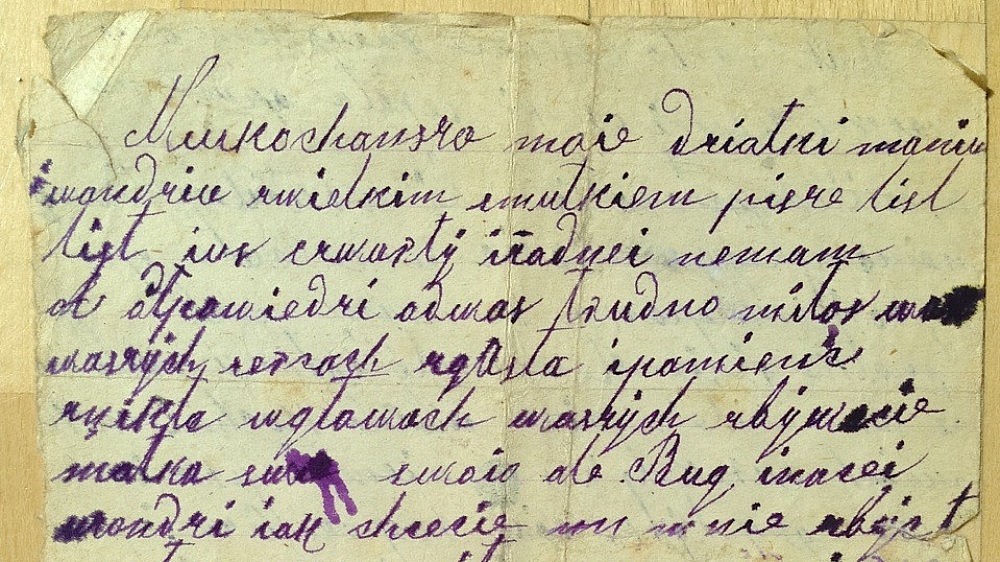 Mukochansza moie dziatki maniu
wandziu zwielkim smutkiem pisze list
list ius czwarty iżadnei nemam
od otpowiedzi odwas trudno miłos was
waszych sercach zgasła ipamienś
znikła wgłowach waszych zbyw cie
matka swoio ale Bug inacei
wondzi iak chcecie mnie zbyśt